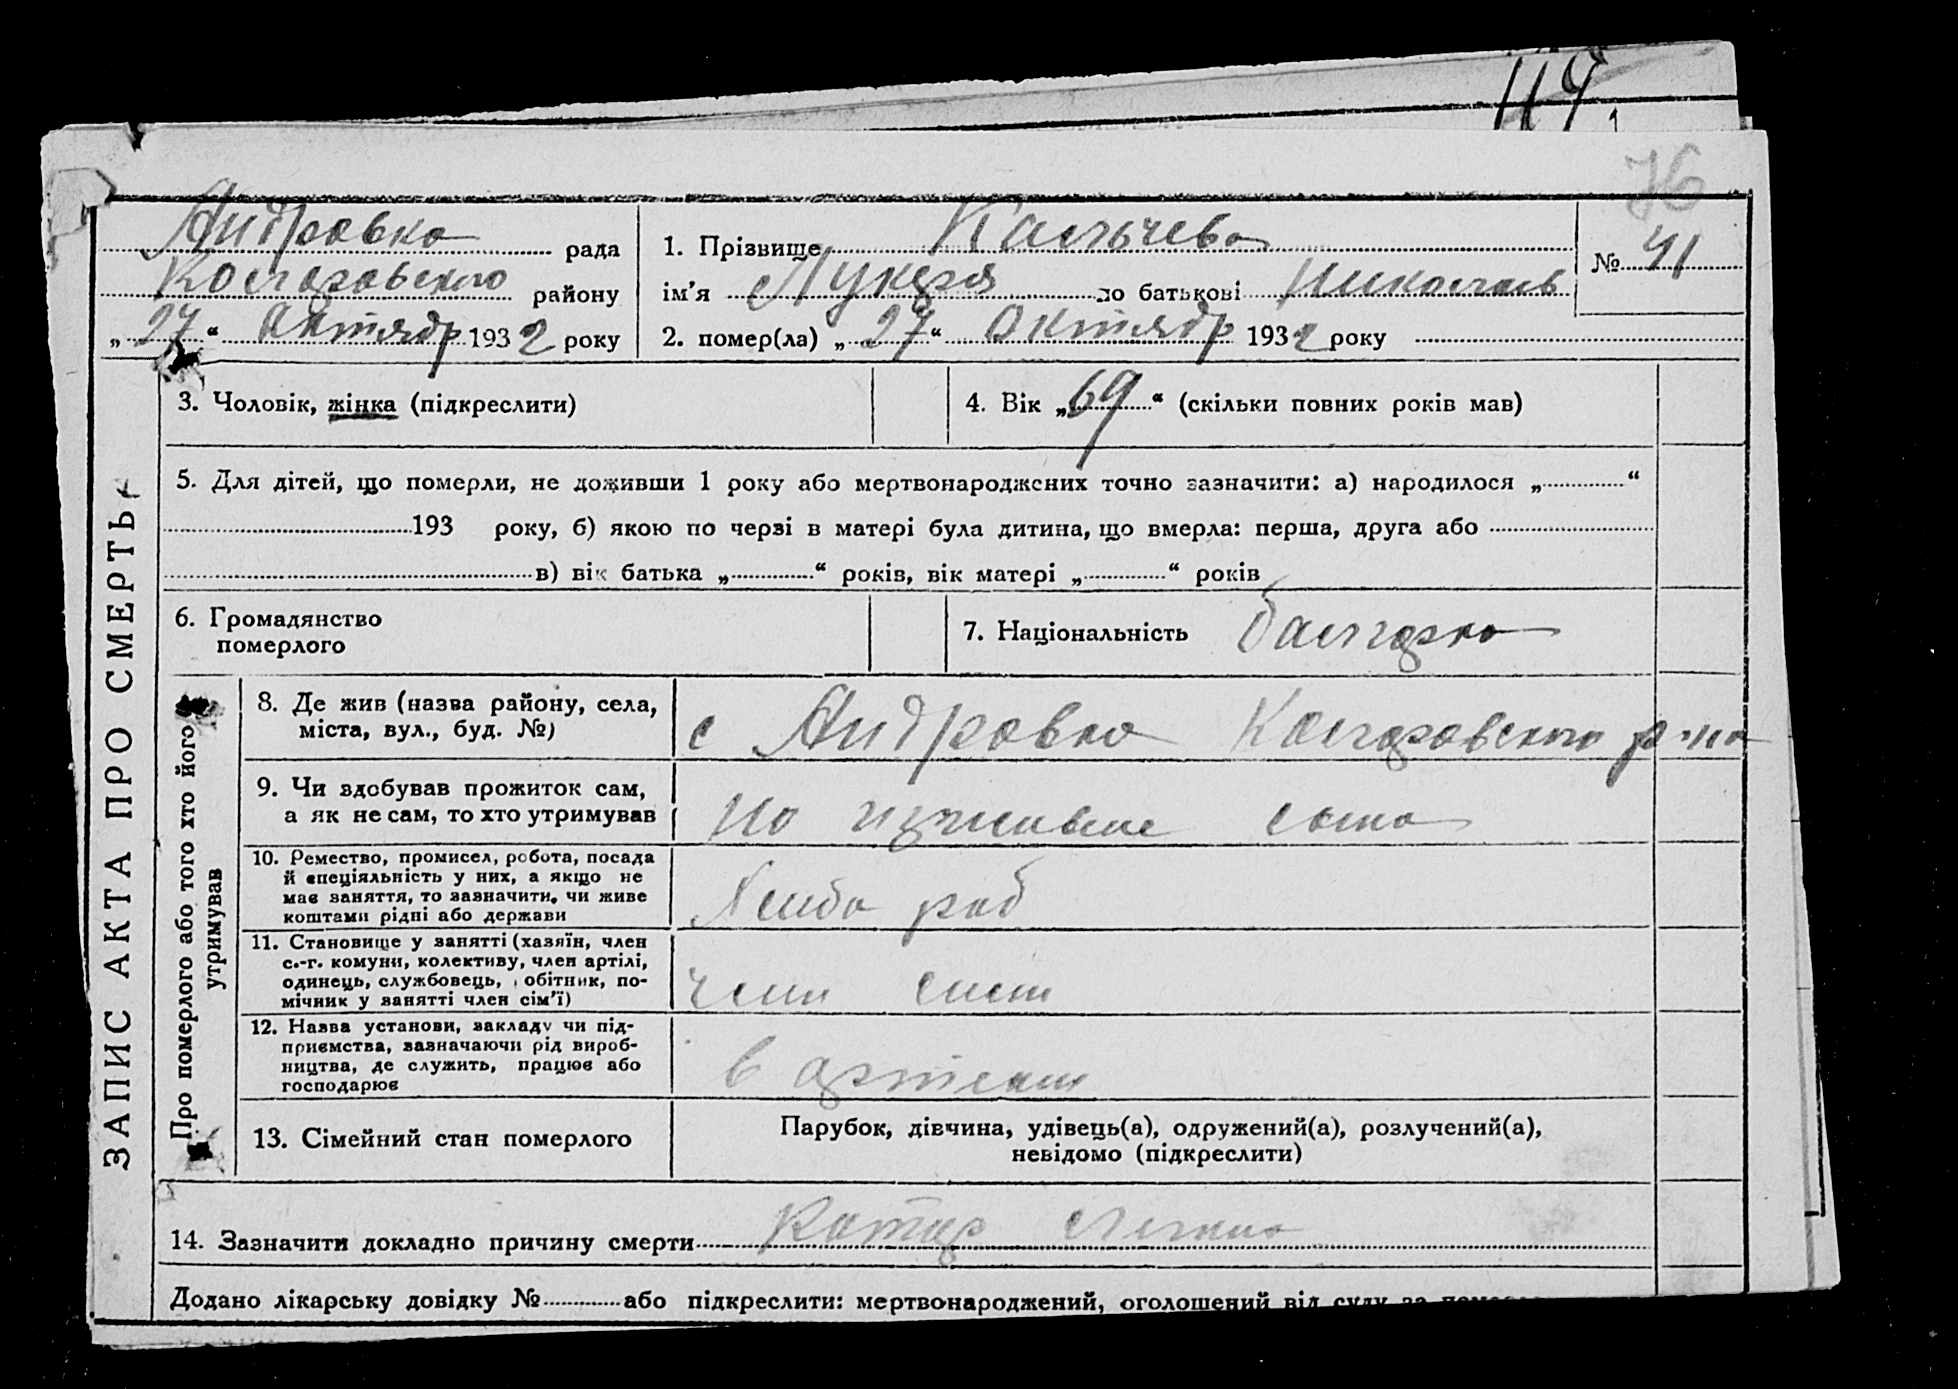 119
76
Андровка рада
Коларовского району
„27“ Октядр 1932 року
1. Прізвище Кальчева
ім’я Лукеря по батькові Николаев
2. помер(ла) „27“ Октядр 1932 року
№ 41
ЗАПИС АКТА ПРО СМЕРТЬ
3. Чоловік, жінка (підкреслити)
4. Вік „69“ (скільки повних років мав)
5. Для дітей, що померли, не доживши 1 року або мертвонароджених точно зазначити: а) народилося „ “
193 року, б) якою по черзі в матері була дитина, що вмерла: перша, друга або
в) вік батька „ “ років, вік матері „ “ років
6. Громадянство
померлого
7. Національність болгарка
Про померлого або того хто його
утримував
8. Де жив (назва району, села,
міста, вул., буд. №)
с Андровка Коларовского р-на
9. Чи здобував прожиток сам,
а як не сам, то хто утримував
На иждивение сына
10. Ремество, промисел, робота, посада
й спеціяльність у них, а якщо не
має заняття, то зазначити, чи живе
коштами рідні або держави
Хлебо роб
11. Становище у занятті (хазяїн, член
с.-г. комуни, колективу, член артілі,
одинець, службовець, обітник, по-
мічник у занятті член сім’ї)
член сем
12. Назва установи, закладу чи під-
приємства, зазначаючи рід вироб-
ництва, де служить, працює або
господарює
в артели
13. Сімейний стан померлого
Парубок, дівчина, удівець(а), одружений(а), розлучений(а),
невідомо (підкреслити)
14. Зазначити докладно причину смерти Катар легких
Додано лікарську довідку № або підкреслити: мертвонароджений, оголошений від суду за